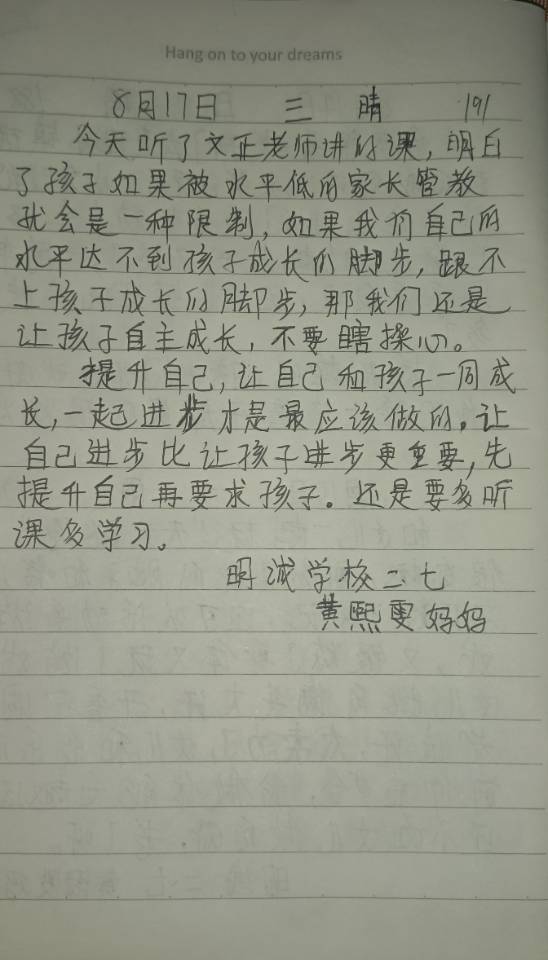 Hang on to your dreams
8月17日 三 晴 191
今天听了文正老师讲的课，明白
了孩子如果被水平低的家长管教
就会是一种限制，如果我们自己的
水平达不到孩子成长的脚步，跟不
上孩子成长的脚步，那我们还是
让孩子自主成长，不要瞎操心。
提升自己，让自己和孩子一同成
长，一起进步才是最应该做的。让
自己进步比让孩子进步更重要，先
提升自己再要求孩子。还是要多听
课多学习。
明诚学校二七
黄熙雯妈妈